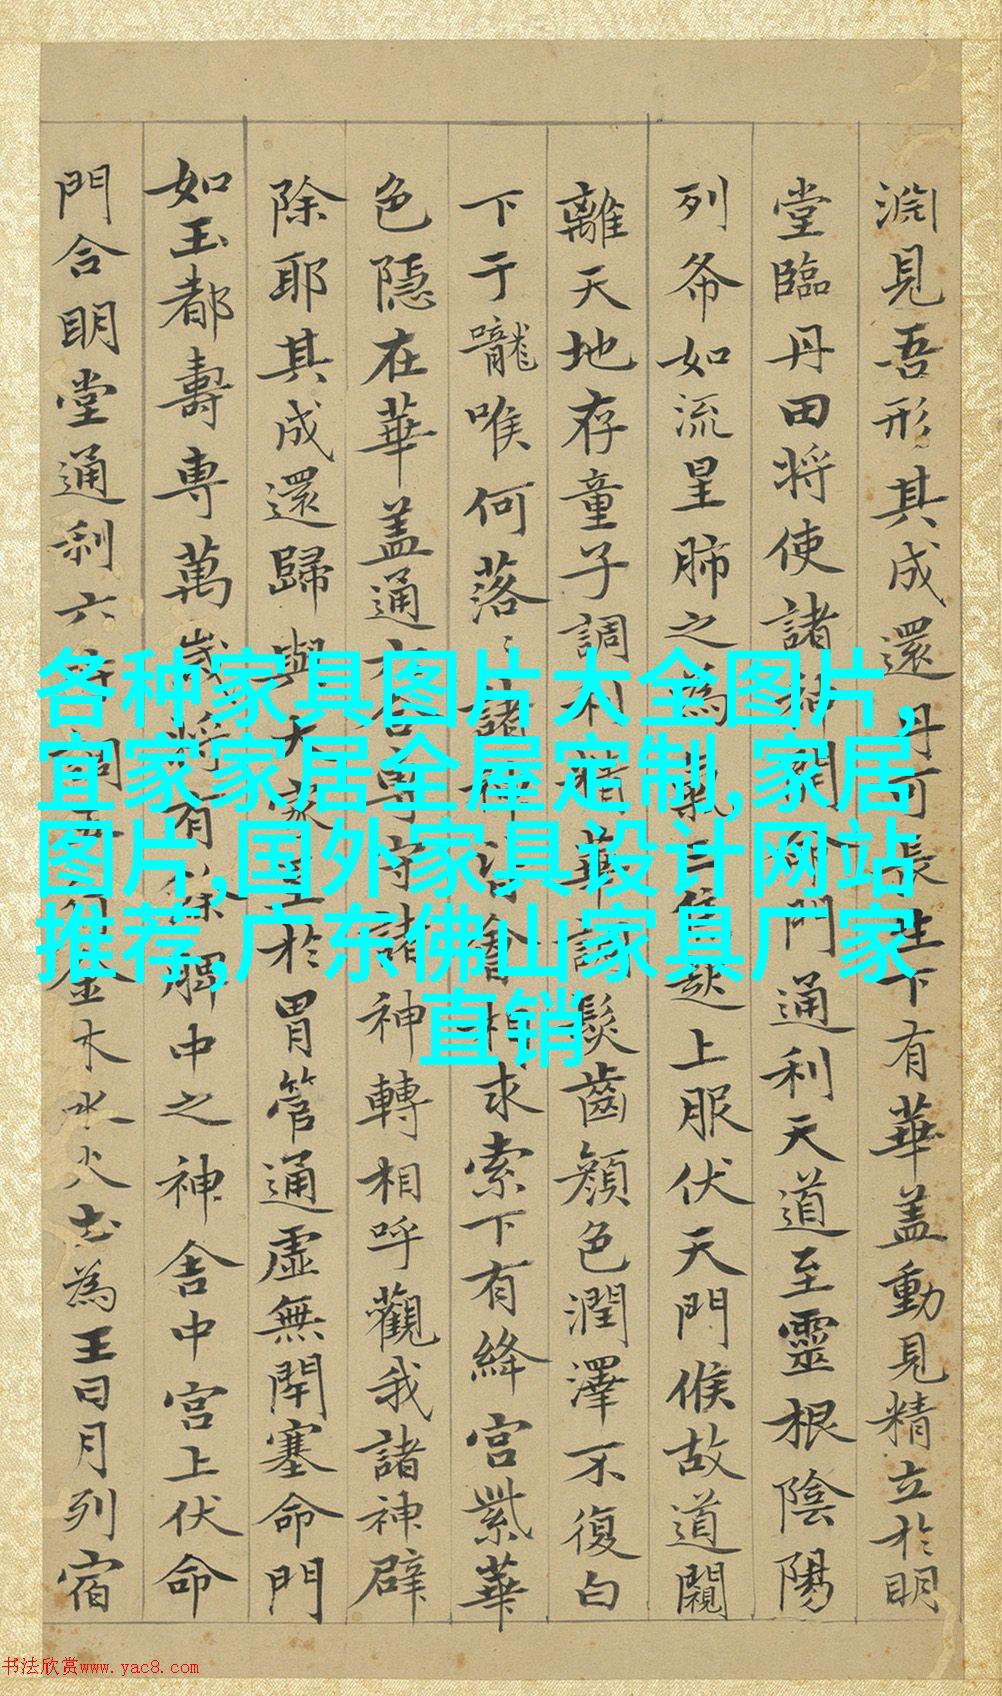 淵見吾形其成還丹可長生下有華盖動見精立於明
堂臨丹田将使諸神開命門通利天道至靈根陰陽
列布如流星肺之為氣三焦起上服伏天門候故道闚
離天地存童子調利精華調髮齒顏色潤澤不復白
下于嚨喉何落〻諸神皆會相求索下有絳宮紫華
色隱在華盖通六合專守諸神轉相呼觀我諸神辟
除耶其成還歸與大家至於胃管通虛無閇塞命門
如玉都壽専萬歲将有餘脾中之神舍中宮上伏命
門合明堂通利六府調五行金木水火土為王日月列宿
各种家具图片大全图片,
宜家家居全屋定制,家居
图片,国外家具设计网站
推荐,广东佛山家具厂家
直销
书法欣赏www.yac8.com